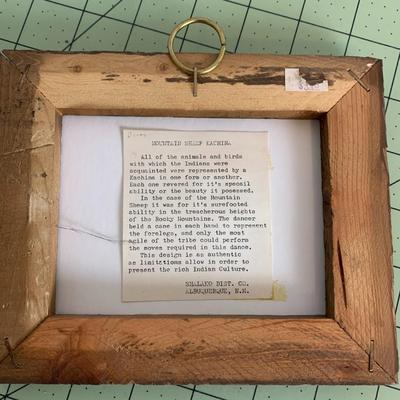 MOUNTAIN SHEEP KACHINA
All of the animals and birds
with which the Indians were
acquainted were represented by a
Kachina in one form or another.
Each one revered for it's special
ability or the beauty it posessed.
In the case of the Mountain
Sheep it was for it's surefooted
ability in the treacherous heights
of the Rocky Mountains. The dancer
held a cane in each hand to represent
the forelegs, and only the most
agile of the tribe could perform
the moves required in this dance.
This design is as authentic
as limitations allow in order to
present the rich Indian Culture.
SHALAKO DIST. CO.
ALBUQUERQUE, N.M.